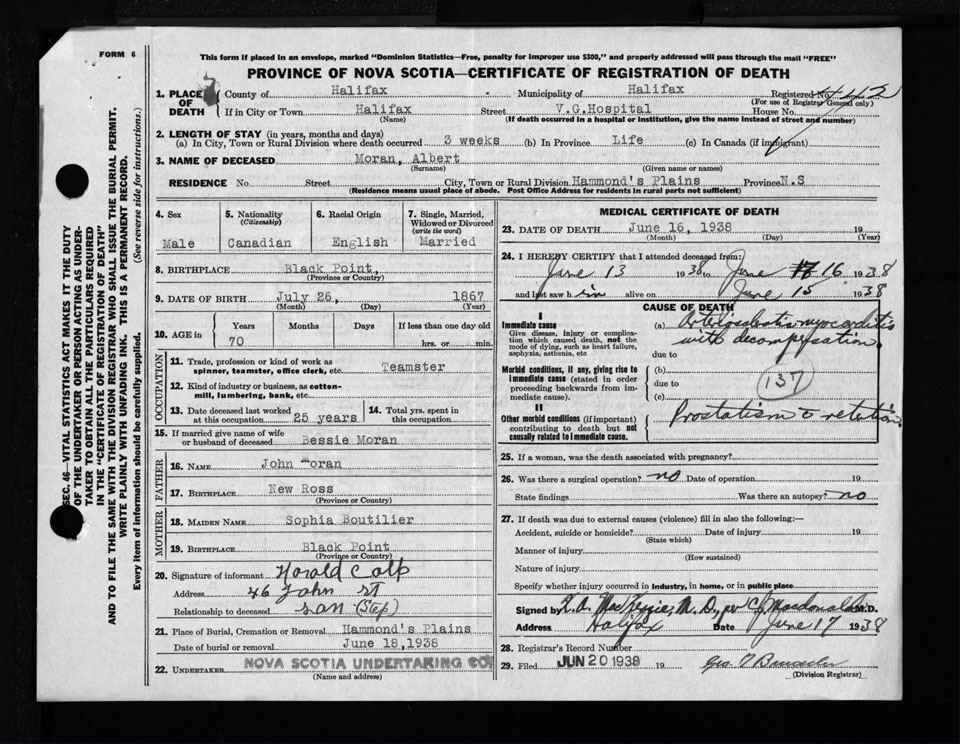 FORM 6
This form if placed in an envelope, marked "Dominion Statistics—Free, penalty for improper use $300," and properly addressed will pass through the mail "FREE"
PROVINCE OF NOVA SCOTIA—CERTIFICATE OF REGISTRATION OF DEATH
1. PLACE OF DEATH County of Halifax Municipality of Halifax Registered No.
(For use of Registrar General only)
If in City or Town Halifax Street V.G.Hospital House No.
(Name) (If death occurred in a hospital or institution, give the name instead of street and number)
2. LENGTH OF STAY (in years, months and days)
(a) In City, Town or Rural Division where death occurred 3 weeks (b) In Province Life (c) In Canada (if immigrant)
3. NAME OF DECEASED Moran, Albert
(Surname) (Given name or names)
RESIDENCE No. Street City, Town or Rural Division Hammond's Plains Province N.S
(Residence means usual place of abode. Post Office Address for residents in rural parts not sufficient)
4. Sex 5. Nationality (Citizenship) 6. Racial Origin 7. Single, Married, Widowed or Divorced (write the word)
Male Canadian English Married
8. BIRTHPLACE Black Point,
(Province or Country)
9. DATE OF BIRTH July 26, 1867
(Month) (Day) (Year)
10. AGE in Years Months Days If less than one day old
70 hrs. or min.
OCCUPATION
11. Trade, profession or kind of work as spinner, teamster, office clerk, etc. Teamster
12. Kind of industry or business, as cotton-mill, lumbering, bank, etc.
13. Date deceased last worked at this occupation 25 years 14. Total yrs. spent in this occupation
15. If married give name of wife or husband of deceased Bessie Moran
FATHER
16. NAME John Moran
17. BIRTHPLACE New Ross
(Province or Country)
MOTHER
18. MAIDEN NAME Sophia Boutilier
19. BIRTHPLACE Black Point
(Province or Country)
20. Signature of informant Harold Colp
Address 46 John St
Relationship to deceased son (Step)
21. Place of Burial, Cremation or Removal Hammond's Plains
Date of burial or removal June 18,1938
22. UNDERTAKER NOVA SCOTIA UNDERTAKING CO.
(Name and address)
MEDICAL CERTIFICATE OF DEATH
23. DATE OF DEATH June 16, 1938 19
(Month) (Day) (Year)
24. I HEREBY CERTIFY that I attended deceased from:
June 13 1938 to June 16 1938
and last saw him alive on June 15 1938
CAUSE OF DEATH
I
Immediate cause
Give disease, injury or complication which caused death, not the mode of dying, such as heart failure, asphyxia, asthenia, etc
(a) myocarditis with decompensation.
due to
Morbid conditions, if any, giving rise to immediate cause (stated in order proceeding backwards from immediate cause).
(b)
due to
(c)
137
II
Other morbid conditions (if important) contributing to death but not causally related to immediate cause.
Prostatism c retention
25. If a woman, was the death associated with pregnancy?
26. Was there a surgical operation? no Date of operation 19
State findings Was there an autopsy? no
27. If death was due to external causes (violence) fill in also the following:—
Accident, suicide or homicide? Date of injury 19
(State which)
Manner of injury
(How sustained)
Nature of injury
Specify whether injury occurred in industry, in home, or in public place
Signed by K. A. MacKenzie M. D., per C. J. Macdonald M.D.
Address Halifax Date June 17 1938
28. Registrar's Record Number
29. Filed JUN 20 1938 19
(Division Registrar)
SEC. 46—VITAL STATISTICS ACT MAKES IT THE DUTY
OF THE UNDERTAKER OR PERSON ACTING AS UNDER-
TAKER TO OBTAIN ALL THE PARTICULARS REQUIRED
IN THE "CERTIFICATE OF REGISTRATION OF DEATH"
AND TO FILE THE SAME WITH THE DIVISION REGISTRAR WHO SHALL ISSUE THE BURIAL PERMIT.
WRITE PLAINLY WITH UNFADING INK. THIS IS A PERMANENT RECORD.
Every item of information should be carefully supplied. (See reverse side for instructions.)